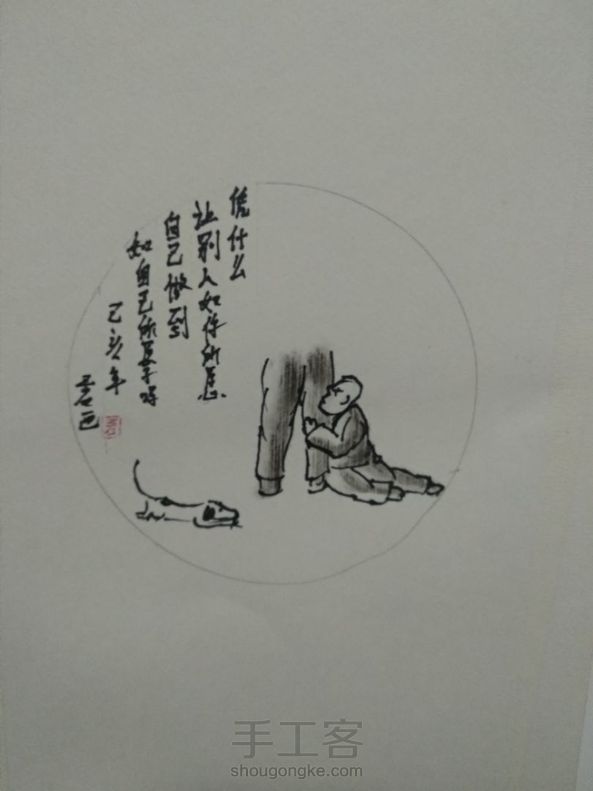 凭什么
让别人如你所愿
自己做到
如自己所愿了吗
己亥年
手工客
shougongke.com